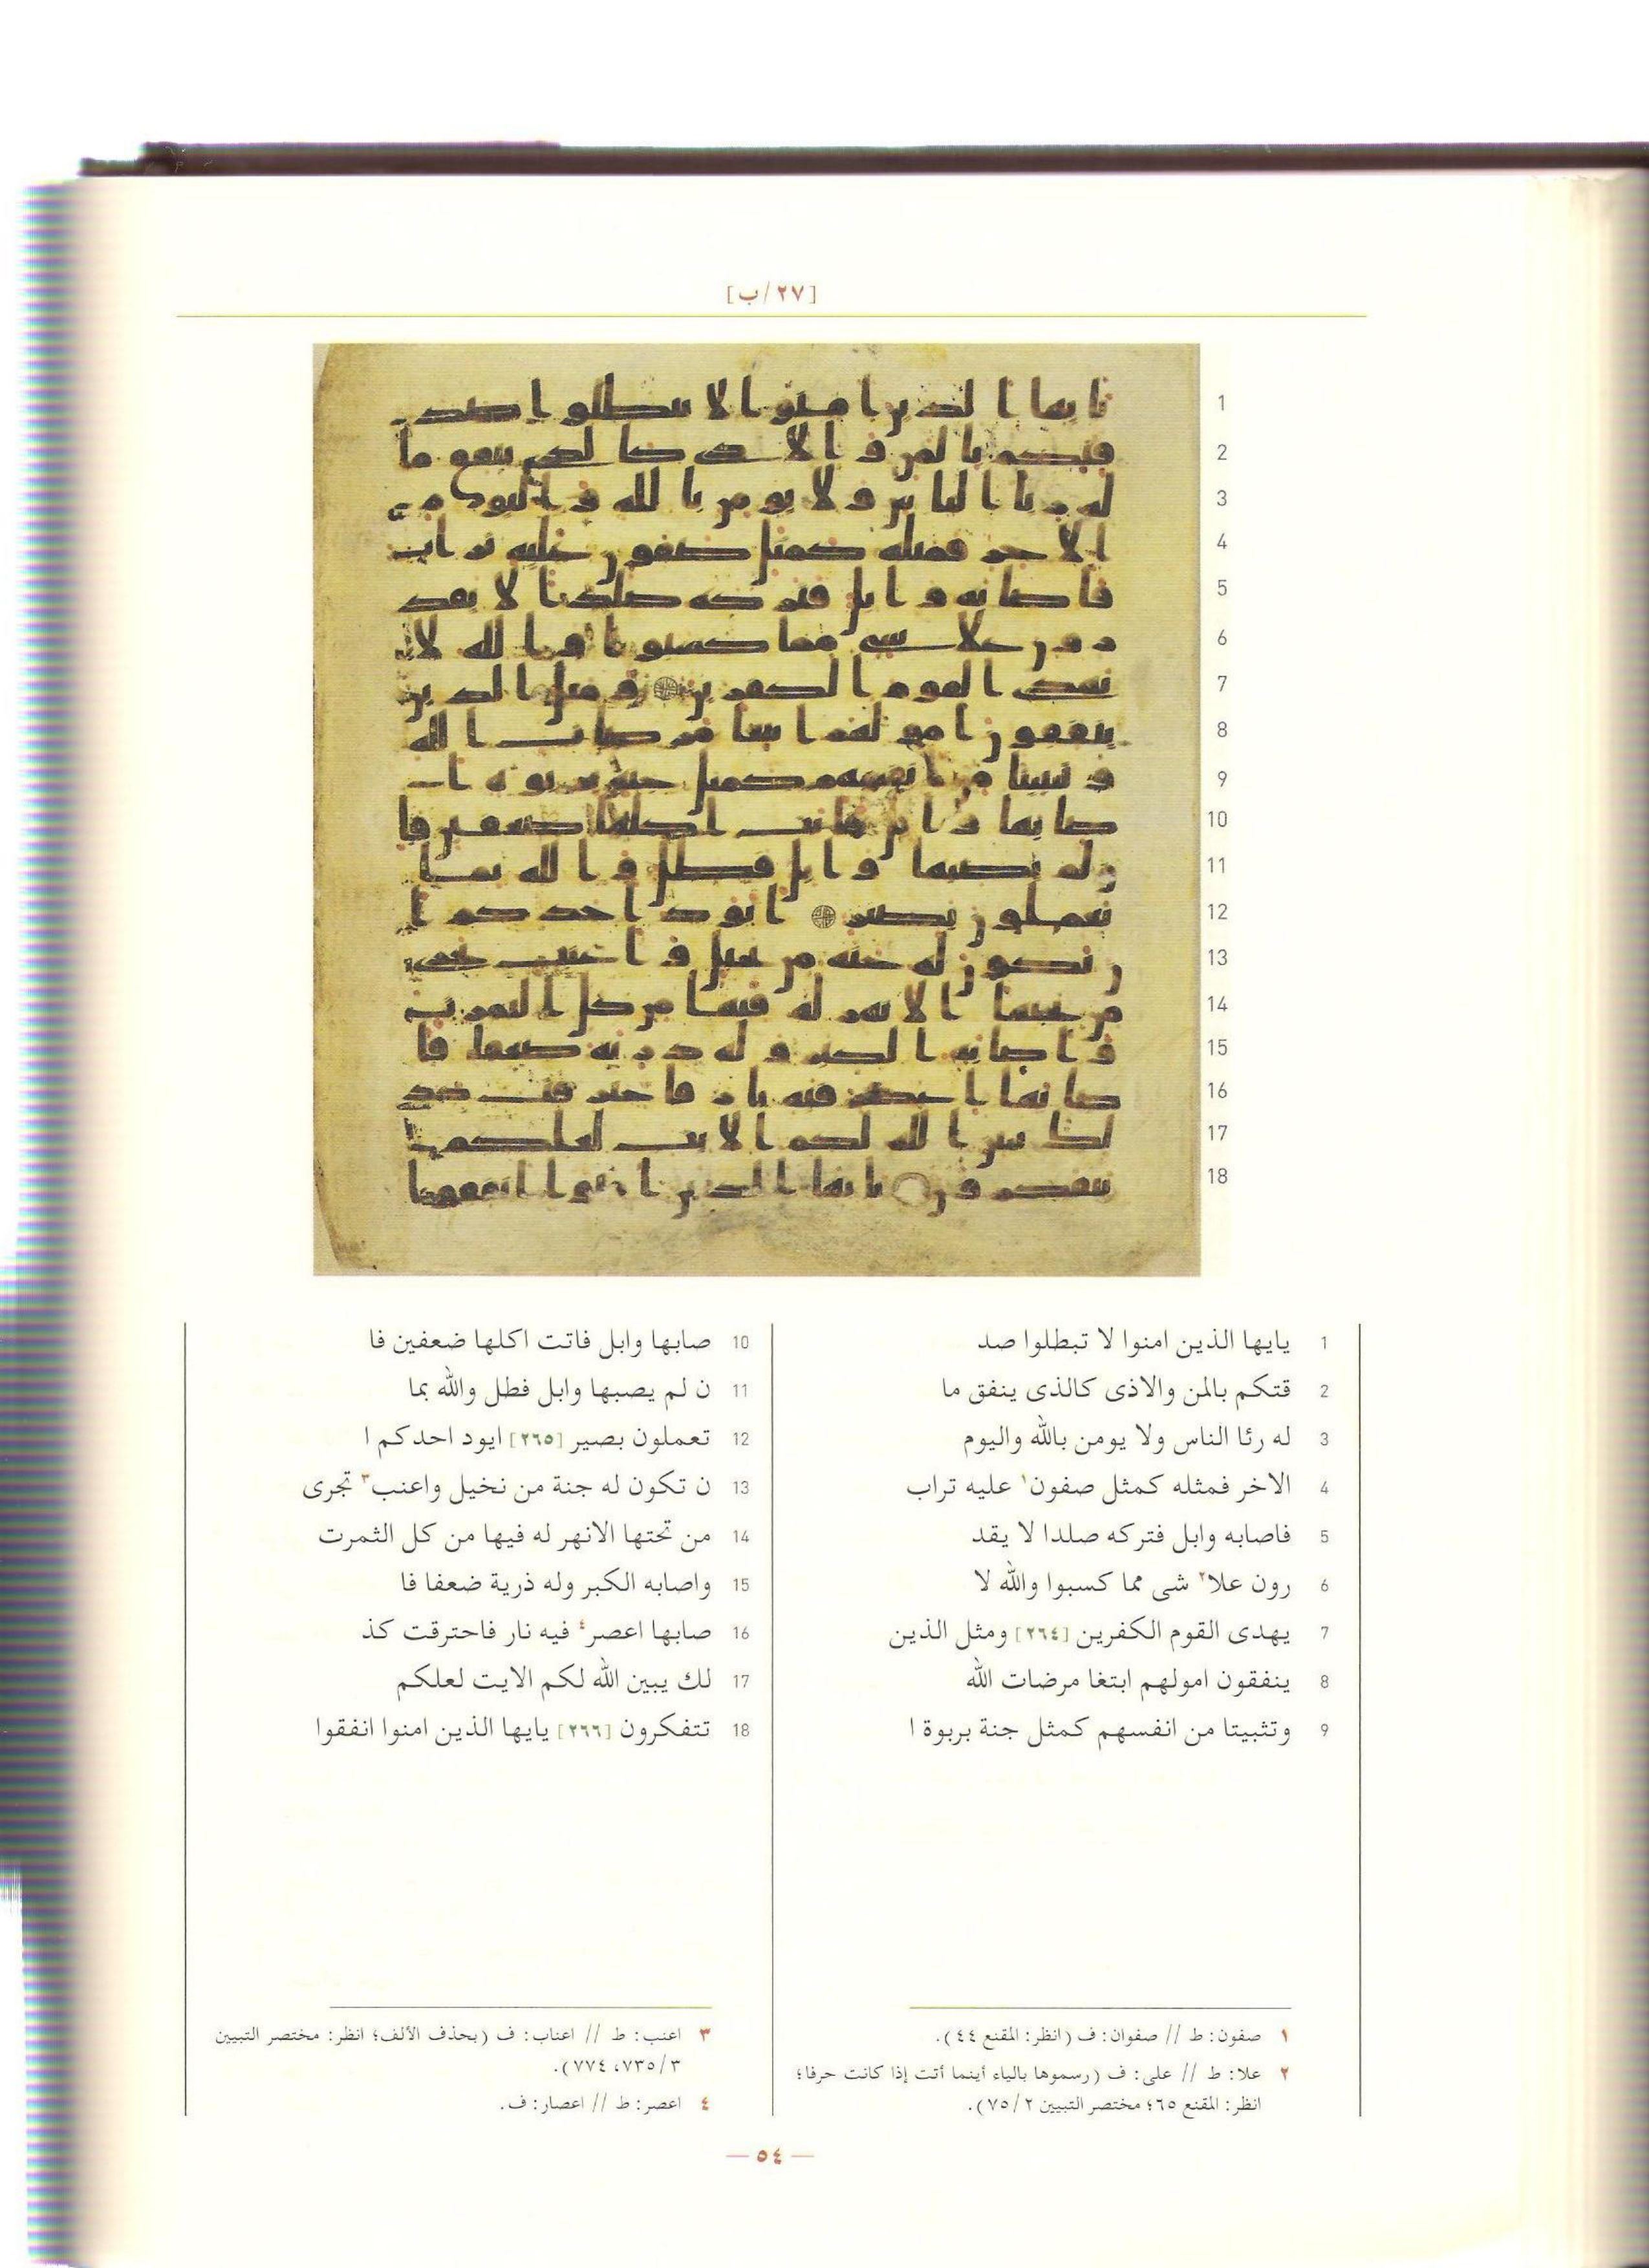 [٢٧/ب]
1
2
3
4
5
6
7
8
9
10
11
12
13
14
15
16
17
18
1 يايها الذين امنوا لا تبطلوا صد
2 قتكم بالمن والاذى كالذى ينفق ما
3 له رئا الناس ولا يومن بالله واليوم
4 الاخر فمثله كمثل صفون١ عليه تراب
5 فاصابه وابل فتركه صلدا لا يقد
6 رون علا٢ شى مما كسبوا والله لا
7 يهدى القوم الكفرين [٢٦٤] ومثل الذين
8 ينفقون امولهم ابتغا مرضات الله
9 وتثبيتا من انفسهم كمثل جنة بربوة ا
10 صابها وابل فاتت اكلها ضعفين فا
11 ن لم يصبها وابل فطل والله بما
12 تعملون بصير [٢٦٥] ايود احدكم ا
13 ن تكون له جنة من نخيل واعنب٣ تجرى
14 من تحتها الانهر له فيها من كل الثمرت
15 واصابه الكبر وله ذرية ضعفا فا
16 صابها اعصر٤ فيه نار فاحترقت كذ
17 لك يبين الله لكم الايت لعلكم
18 تتفكرون [٢٦٦] يايها الذين امنوا انفقوا
١ صفون: ط // صفوان: ف (انظر: المقنع ٤٤).
٢ علا: ط // على: ف (رسموها بالياء أينما أتت إذا كانت حرفا؛
انظر: المقنع ٦٥؛ مختصر التبيين ٢/٧٥).
٣ اعنب: ط // اعناب: ف (بحذف الألف؛ انظر: مختصر التبيين
٣/٧٣٥، ٧٧٤).
٤ اعصر: ط // اعصار: ف.
— ٥٤ —